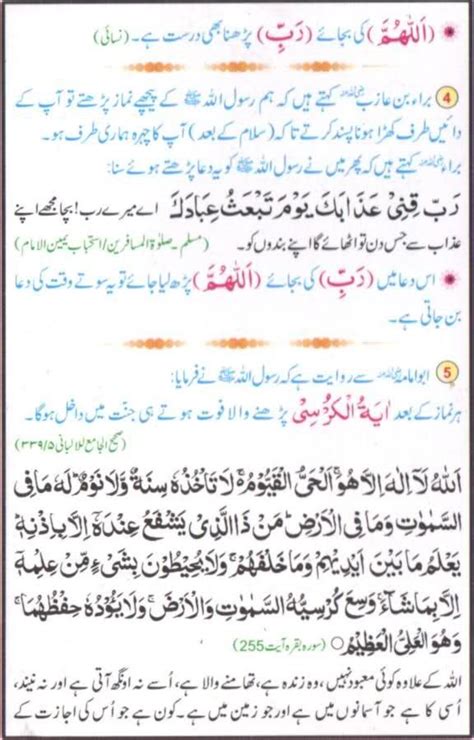 • (اَللّٰهُمَّ) کی بجائے (رَبِّ) پڑھنا بھی درست ہے۔ (نسائی)
④ براء بن عازب رضی اللہ عنہ کہتے ہیں کہ ہم رسول اللہ ﷺ کے پیچھے نماز پڑھتے تو آپ کے
دائیں طرف کھڑا ہونا پسند کرتے تا کہ (سلام کے بعد) آپ کا چہرہ ہماری طرف ہو۔
براء رضی اللہ عنہ کہتے ہیں کہ پھر میں نے رسول اللہ ﷺ کو یہ دعا پڑھتے ہوئے سنا:
رَبِّ قِنِیْ عَذَابَكَ یَوْمَ تَبْعَثُ عِبَادَكَ اے میرے رب! بچا مجھے اپنے
عذاب سے جس دن تو اٹھائے گا اپنے بندوں کو۔ (مسلم۔صلوٰۃ المسافرین/استحباب یمین الامام)
• اس دعا میں (رَبِّ) کی بجائے (اَللّٰهُمَّ) پڑھ لیا جائے تو یہ سوتے وقت کی دعا
بن جاتی ہے۔
⑤ ابو امامہ رضی اللہ عنہ سے روایت ہے کہ رسول اللہ ﷺ نے فرمایا:
ہر نماز کے بعد اٰیَةُ الْكُرْسِیْ پڑھنے والا فوت ہوتے ہی جنت میں داخل ہوگا۔
(صحیح الجامع للالبانی ۵/۳۳۹)
اَللّٰهُ لَاۤ اِلٰهَ اِلَّا هُوَ ۚ اَلْحَیُّ الْقَیُّوْمُ ۚ لَا تَاْخُذُهٗ سِنَةٌ وَّلَا نَوْمٌ ؕ لَهٗ مَا فِی
السَّمٰوٰتِ وَمَا فِی الْاَرْضِ ؕ مَنْ ذَا الَّذِیْ یَشْفَعُ عِنْدَهٗۤ اِلَّا بِاِذْنِهٖ ؕ
یَعْلَمُ مَا بَیْنَ اَیْدِیْهِمْ وَمَا خَلْفَهُمْ ۚ وَلَا یُحِیْطُوْنَ بِشَیْءٍ مِّنْ عِلْمِهٖۤ
اِلَّا بِمَا شَآءَ ۚ وَسِعَ كُرْسِیُّهُ السَّمٰوٰتِ وَالْاَرْضَ ۚ وَلَا یَـُٔوْدُهٗ حِفْظُهُمَا ۚ
وَهُوَ الْعَلِیُّ الْعَظِیْمُ ○ (سورہ بقرہ آیت 255)
اللہ کے علاوہ کوئی معبود نہیں، وہ زندہ ہے، تھامنے والا ہے، اُسے نہ اونگھ آتی ہے اور نہ نیند،
اُسی کا ہے جو آسمانوں میں ہے اور جو زمین میں ہے۔ کون ہے جو اُس کی اجازت کے